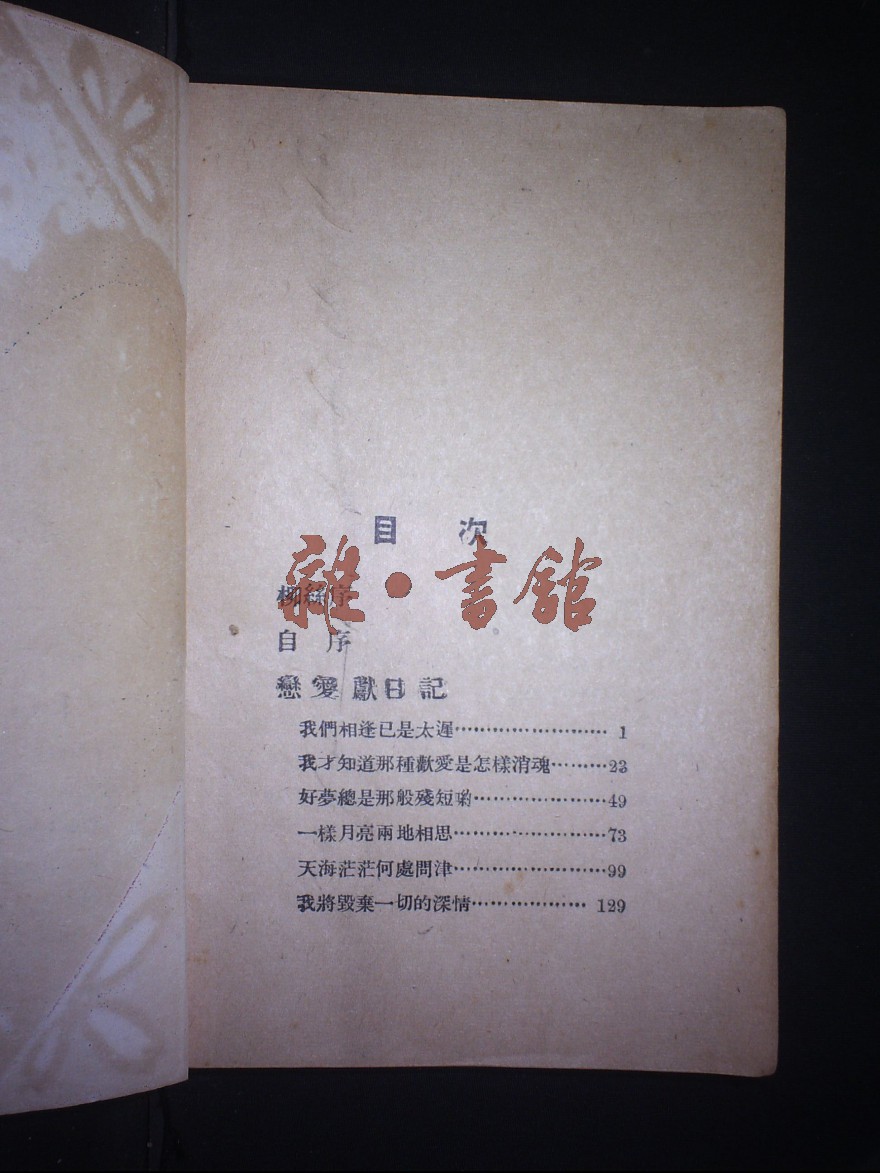 目 次
雜·書館
柳絲序
自 序
戀愛獻日記
我們相逢已是太遲…………………… 1
我才知道那種歡愛是怎樣消魂………23
好夢總是那般殘短喲…………………49
一樣月亮兩地相思……………………73
天海茫茫何處問津……………………99
我將毀棄一切的深情……………… 129